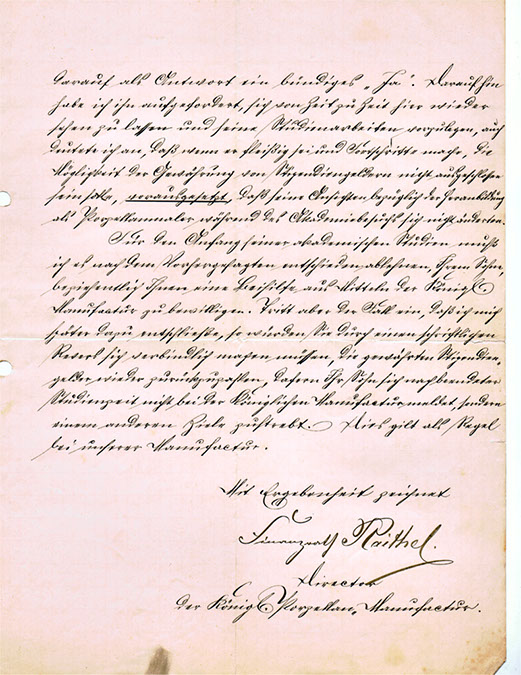 darauf als Antwort ein bündiges „Ja“. Daraufhin
habe ich ihn aufgefordert, sich von Zeit zu Zeit hier wieder
sehen zu lassen und seine Studienarbeiten vorzulegen, auch
deutete ich an, daß wenn er fleißig sei und Fortschritte mache, die
Möglichkeit der Gewährung von Stipendiengeldern nicht ausgeschlossen
sein solle, vorausgesetzt, daß seine Ansichten bezüglich der Heranbildung
als Porzellanmaler während des Akademiebesuchs sich nicht änderten.
Für den Anfang seiner akademischen Studien muß
ich es nach dem Vorhergesagten entschieden ablehnen, Ihrem Sohn,
beziehentlich Ihnen eine Beihilfe aus Mitteln der Königl.
Manufactur zu bewilligen. Tritt aber der Fall ein, daß ich mich
später dazu entschließe, so würden Sie durch einen schriftlichen
Revers sich verbindlich machen müssen, die gewährten Stipendien-
gelder wieder zurückzuzahlen, dafern Ihr Sohn sich nach beendeter
Studienzeit nicht bei der Königlichen Manufactur meldet, sondern
einem anderen Ziele zustrebt. Dies gilt als Regel
bei unserer Manufactur.
Mit Ergebenheit zeichnet
Finanzrath Raithel.
Director
der Königl. Porzellan-Manufactur.